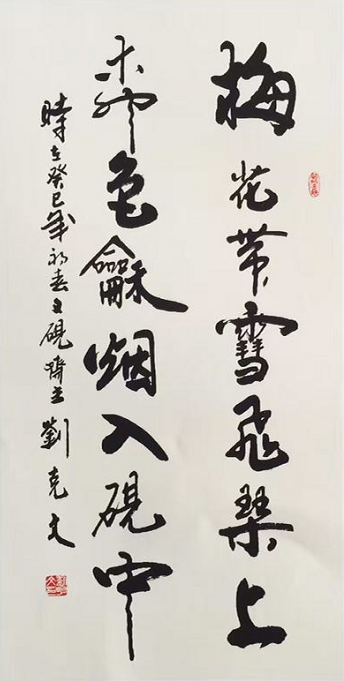 梅花帶雪飛琴上
柳色龢烟入硯中
時在癸巳歲初春文硯齋主劉克文